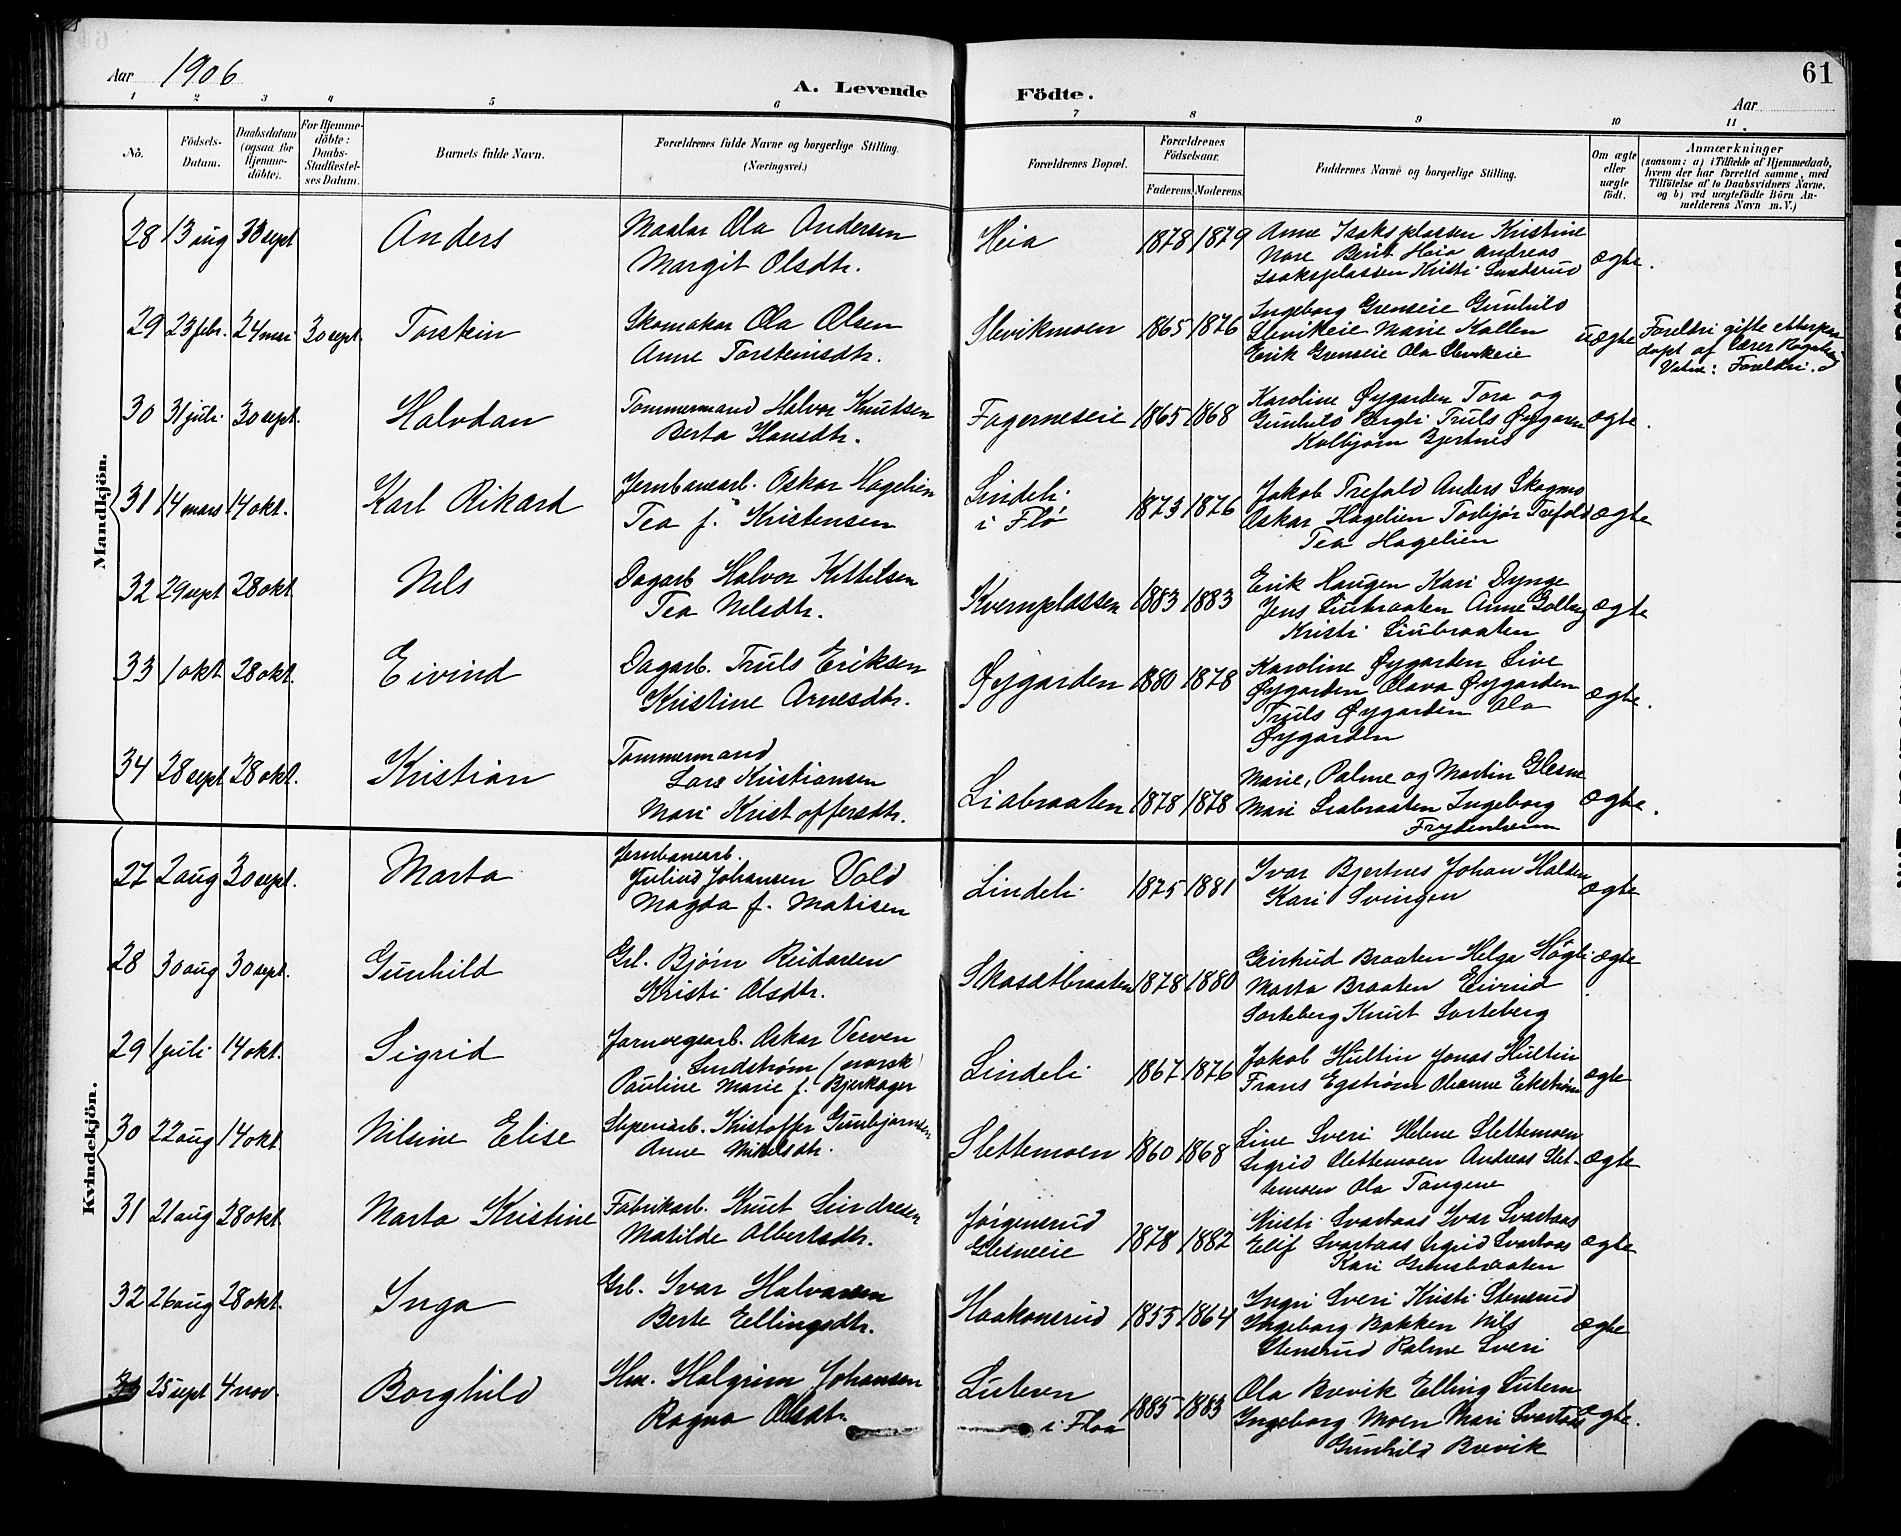 Aar 1906
A. Levende
Födte.
Aar
61
1 2 3 4 5 6 7 8 9 10 11.
No.
Födsels-Datum.
Daabsdatum (ogsaa for Hjemme-döbte).
For Hjemme-döbte: Daabs-Stadfæstel-ses Datum.
Barnets fulde Navn.
Forældrenes fulde Navne og borgerlige Stilling. (Næringsvei.)
Forældrenes Bopæl.
Forældrenes Födselsaar.
Faderens. Moderens.
Faddernes Navne og borgerlige Stilling.
Om ægte eller uægte födt.
Anmærkninger
(saasom: a) i Tilfælde af Hjemmedaab, hvem der har forrettet samme, med Tilföielse af to Daabsvidners Navne, og b) ved uægtefödte Börn An-melderens Navn m. V.)
Mandkjön.
28 13 aug 30 sept Anders
Maalar Ola Andersen
Margit Olsdtr.
Heia 1878 1879
Anne Isaksplassen Kristine
Nore Berit Heia Andreas
Isaksplassen Kristi Sundsrud
ægte.
29 23 febr. 24 mai 30 sept. Torstein
Skomakar Ola Olsen
Anne Torsteinsdtr.
Slevikmoen 1865 1876
Ingeborg Grenseie Gunhild
Slevikeie Marie Kollen
Erik Grenseie Ola Slevikeie
uægte
Foreldri gifte etterpaa
døpt af Lærer
Vitne: Foreldri.
30 31 juli 30 sept. Halvdan
Tommermand Halvor Knutsen
Berta Hansdtr.
Fagerneseie 1865 1868
Karoline Øygarden Tora og
Gunhild Bergli Truls Øygaren
Kolbjørn Bjertnes
ægte.
31 14 mars 14 okt. Karl Rikard
Jernbanearb. Oskar Hagelien
Tea f. Kristensen
Lindeli
i Flø
1873 1876
Jakob Trefald Anders Skogmo
Oskar Hagelien Torbjør Trefald
Tea Hagelien
ægte
32 29 sept 28 okt Nils
Dagarb Halvor Kittilsen
Tea Nilsdtr.
Kvernplassen 1883 1883
Erik Haugen Kari Dynge
Jens Liubraaten Anne Golberg
Kristi Liubraaten
ægte
33 1 okt 28 okt. Eivind
Dagarb. Truls Eriksen
Kristine Arnesdtr.
Øygarden 1880 1878
Karoline Øygarden Live
Øygarden Olava Øygarden
Truls Øygarden Ola
Øygarden
ægte.
34 28 sept 28 okt. Kristian
Tommermand
Lars Kristiansen
Mari Kristoffersdtr.
Liabraaten 1878 1878
Marie, Palme og Martin Glesne
Mari Liabraaten Ingeborg
Frydenheim
ægte.
Kvindekjön.
27 2 aug 30 sept. Marta
Jernbanearb.
Julius Johansen Vold
Magda f. Matisen
Lindeli 1875 1881
Ivar Bjertnes Johan Halden
Kari Svingen
ægte
28 30 aug 30 sept. Gunhild
Grl. Bjørn Reidarsen
Kristi Olsdtr.
Skasetbraaten 1878 1880
Geirtrud Braaten Helga Høgli
Marta Braaten Eivind
Sorteberg Knut Sorteberg
ægte
29 1 juli 14 okt. Sigrid
Jarnvegsarb. Oskar Verven
Lindstrøm (norsk)
Pauline Marie f. Bjerkager
Lindeli 1867 1876
Jakob Hultin Jonas Hultin
Frans Egstrøm Oleanne Ekstrøm
ægte
30 22 aug 14 okt Nilsine Elise
Sliperiarb. Kristoffer Gunbjørnsen
Anne Nilsdtr.
Slettemoen 1860 1868
Line Sveri Helene Slettemoen
Sigrid Slettemoen Andreas Slet-
temoen Ola Tangene
ægte
31 21 aug 28 okt Marta Kristine
Fabrikarb. Knut Sindresen
Matilde Albertsdtr.
Jørgensrud
Glesneeie
1878 1882
Kristi Svartaas Ivar Svartaas
Elif Svartaas Sigrid Svartaas
Kari Grensbraaten
ægte
32 26 aug 28 okt. Inga
Grl. Ivar Halvorsen
Berte Ellingsdtr.
Haakonsrud 1855 1864
Ingri Sveri Kristi Stensrud
Ingeborg Bakken Nils
Stensrud Palme Sveri
ægte
33 25 sept 4 nov. Borghild
Hm. Halgrim Johansen
Ragna Olsdtr
Lutern
i Floa
1885 1883
Ola Brevik Elling Lutern
Ingeborg Moen Mari Svartaas
Gunhild Brevik
ægte.